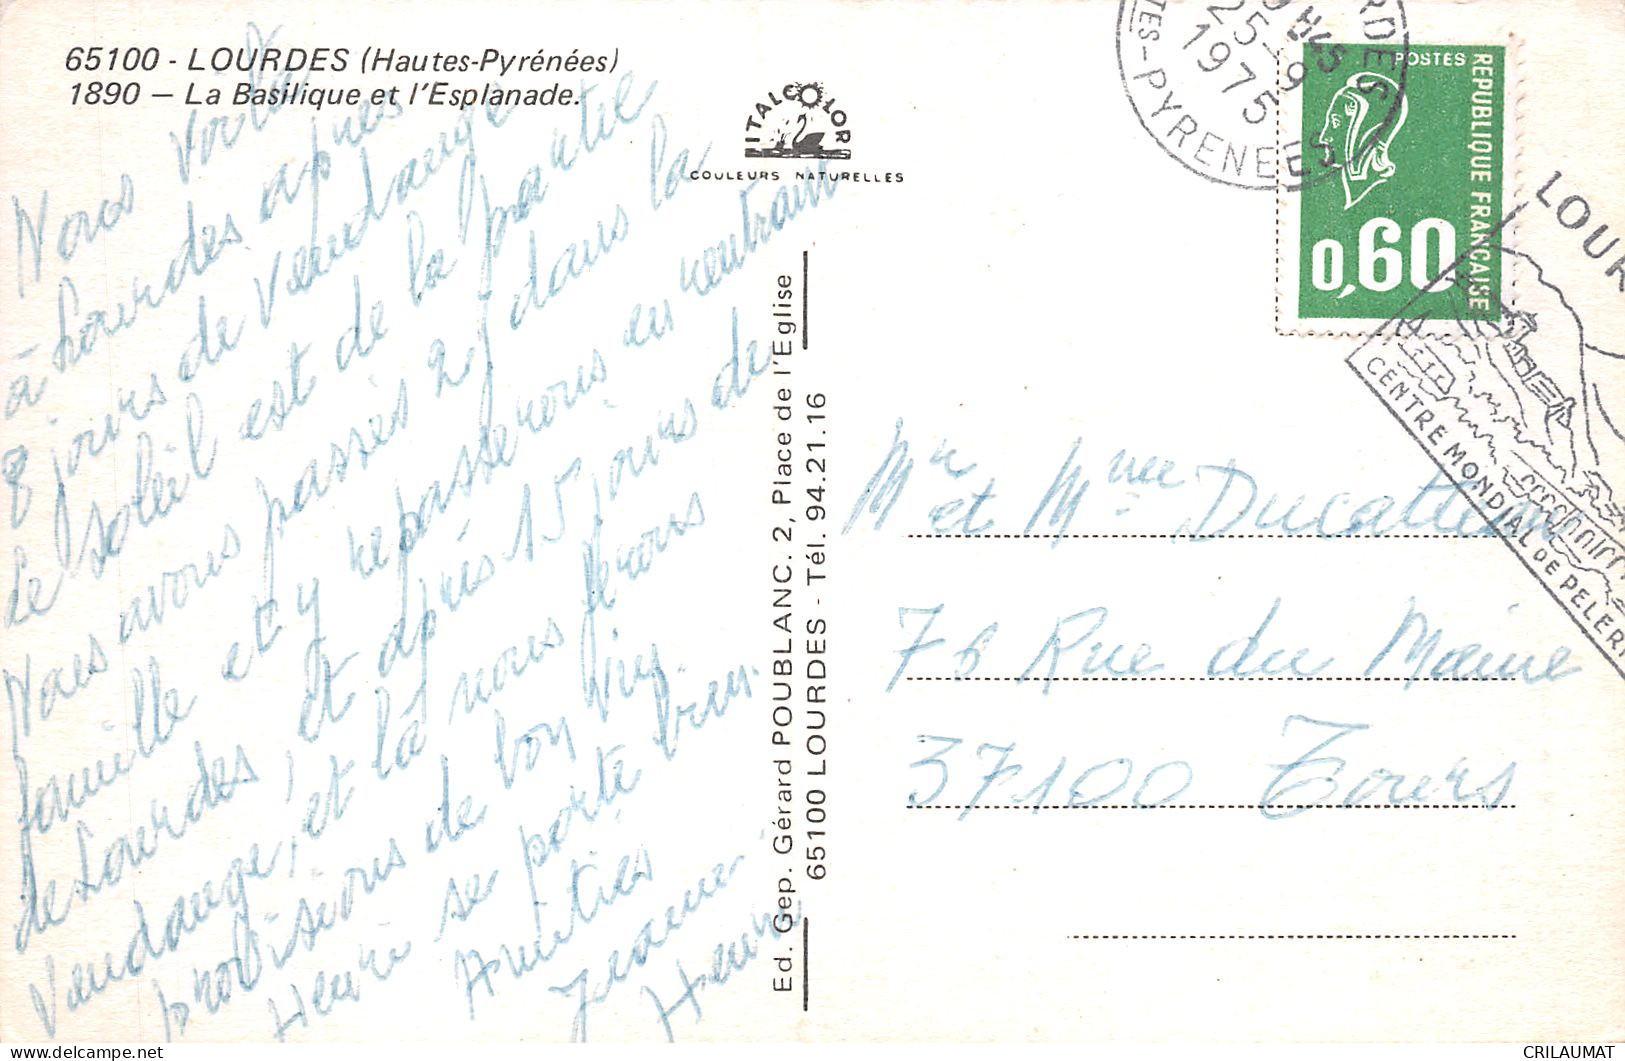 65100 - LOURDES (Hautes-Pyrénées)
1890 — La Basilique et l'Esplanade.
ITALCOLOR
COULEURS NATURELLES
Nous voilà
à Lourdes après
8 jours de vendange
le soleil est de la partie
Nous avons passés 2 j dans la
famille et y repasserons en rentrant
de Lourdes, et après 15 jours de
vendange, et là nous ferons
provisions de bon vin.
Henri se porte bien.
Amitiés
Jeanne
Henri
Ed. Gep. Gérard POUBLANC. 2, Place de l'Eglise
65100 LOURDES - Tél. 94.21.16
25-9
1975
PYRENEES
POSTES
REPUBLIQUE FRANCAISE
0,60
LOUR
CENTRE MONDIAL DE PELERI
Mr et Mme Ducatteau
76 Rue du Maine
37100 Tours
CRILAUMAT